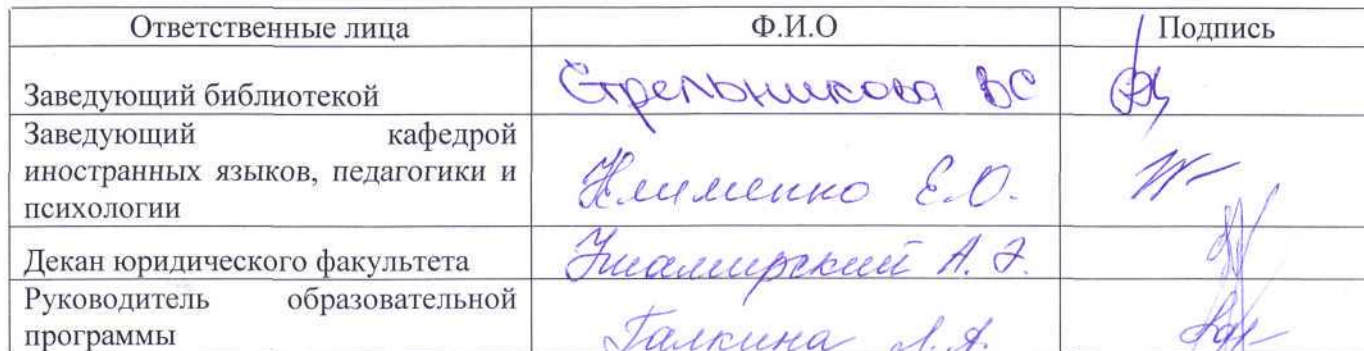 Ответственные лица Ф.И.О Подпись
Заведующий библиотекой Стрельникова ВС
Заведующий кафедрой
иностранных языков, педагогики и
психологии Клименко Е.О.
Декан юридического факультета А.
Руководитель образовательной
программы Галкина